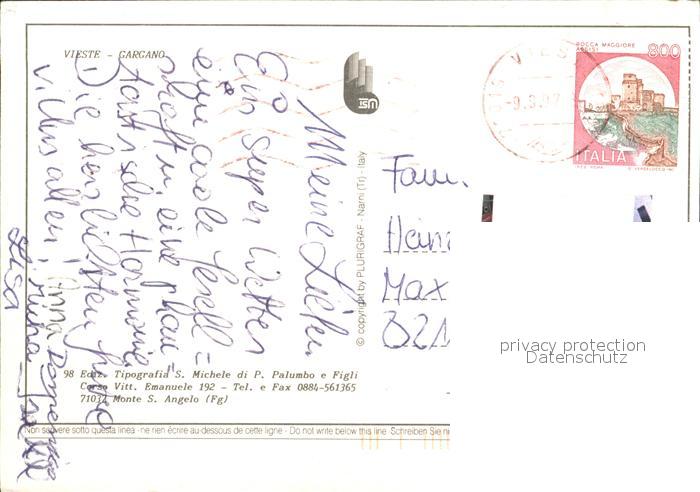 VIESTE - GARGANO
Meine Lieben
Ein super Wetter
eine tolle Gesell=
schaft u. eine phan=
tastische Harmonie
Die herzlichsten Grüße
v. Uns allen
Anna
Lisa
© copyright by PLURIGRAF - Narni (Tr) - Italy
ROCCA MAGGIORE
ASSISI
800
ITALIA
Fam.
Hein
Max
821
privacy protection
Datenschutz
98 Ediz. Tipografia S. Michele di P. Palumbo e Figli
Corso Vitt. Emanuele 192 - Tel. e Fax 0884-561365
71037 Monte S. Angelo (Fg)
Non scrivere sotto questa linea - ne rien écrire au-dessous de cette ligne - Do not write below this line. Schreiben Sie ni